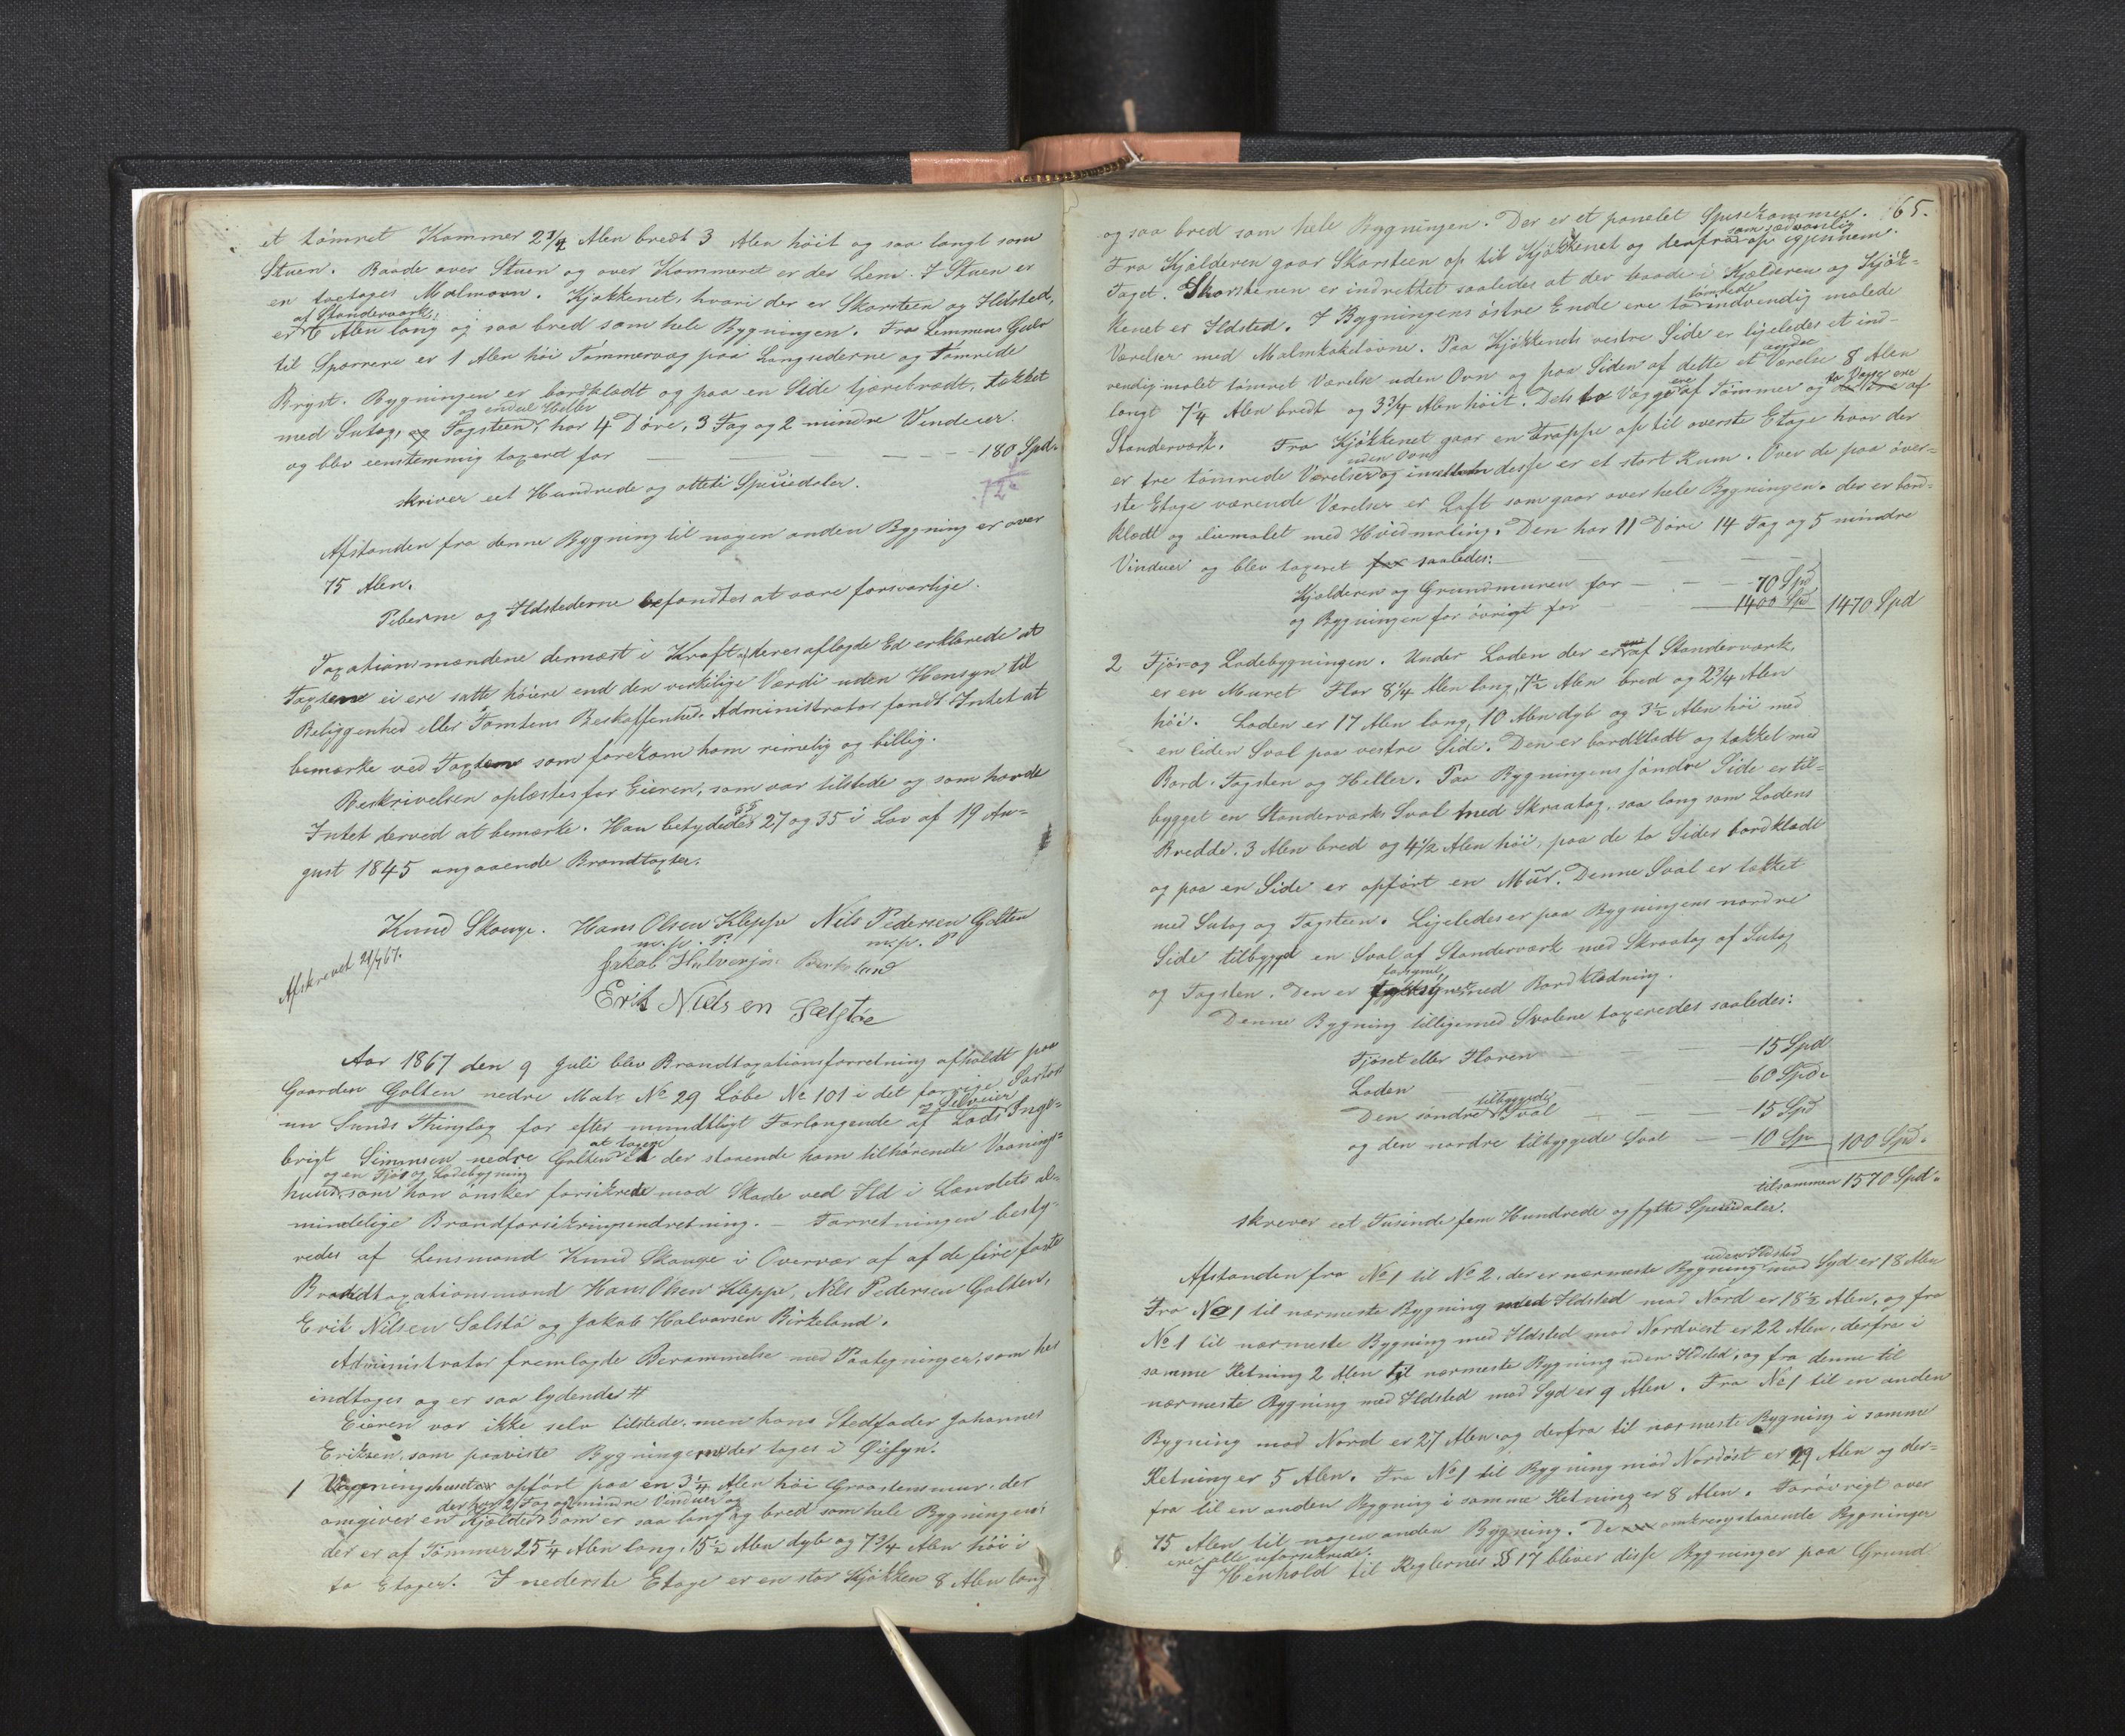 et tömret Kammer 2 3/4 Alen bredt 3 Alen höit og saa langt som
Stuen. Baade over Stuen og over Kammeret er der Lem. I Stuen er
en toetages Malmovn. Kjøkkenet, hvori der er Skorsteen og Ildsted,
af Standerværk,
er 6 Alen lang og saa bred som hele Bygningen. Fra Lemmens Gulv
til Sparrerne er 1 Alen höi Tömmervæg paa Langsiderne og tömrede
Bryst. Bygningen er bordklædt og paa en Side tjærebrædt, tækket
og endeel Heller
med Sutag, og Tagsteen, har 4 Döre, 3 Fag og 2 mindre Vinduer.
og blev eenstemmig taxeret for 180 Spd.
skriver eet Hundrede og otteti Speciedaler.
Afstanden fra denne Bygning til nogen anden Bygning er over
75 Alen.
Piberne og Ildstederne befandtes at være forsvarlige.
Taxationsmændene dernæst i Kraft af deres aflagde Ed erklærede at
Taxterne ei ere satte höiere end den virkelige Værdi uden Hensyn til
Beliggenhed eller Tomtens Beskaffenhed. Administrator fandt Intet at
bemærke ved Taxterne som forekom ham rimelig og billig.
Beskrivelsen oplæstes for Eieren, som var tilstede og som havde
Intet derved at bemærke. Han betydedes §§ 27 og 35 i Lov af 19 Au-
gust 1845 angaaende Brandtaxter.
Knud Skauge. Hans Olsen Kleppe Nils Pedersen Golten
m. p. P. m. p. P
Jakob Halvorsen Birkeland
Afskrevet 24/4 67.
Erik Nielsen Sælstöe
Aar 1867 den 9 Juli blev Brandtaxationsforretning afholdt paa
Gaarden Golten nedre Matr. No 29 Löbe No 101 i det forrige Sartor
nu Sunds Thinglag for efter mundtligt Forlangende af Selveier Lods Inge-
brigt Simensen nedre Golten at taxere et der staaende ham tilhörende Vaanings-
og en Fjös og Ladebygning
huus, som han önsker forsikrede mod Skade ved Ild i Landets al-
mindelige Brandforsikringsindretning. – Forretningen besty-
redes af Lensmand Knud Skauge i Overvær af af de fire faste
Brandtaxationsmænd Hans Olsen Kleppe, Nils Pedersen Golten,
Erik Nilsen Sælstö og Jakob Halvorsen Birkeland.
Administrator fremlagde Berammelse med Paategninger, som her
indtages og er saa lydende #
Eieren var ikke selv tilstede, men hans Stedfader Johannes
Eriksen, som paaviste Bygningerne der toges i Öiesyn.
1 Vaaningshuset er opfört paa en 3 1/4 Alen höi Graasteensmur, der
der har 2 Fag og mindre Vinduer og
omgiver en Kjælder som er saa lang og bred som hele Bygningen,
der er af Tömmer 25 1/4 Alen lang, 15 1/2 Alen dyb og 7 3/4 Alen höi i
to Etager. I nederste Etage er en stor Kjøkken 8 Alen lang
65.
og saa bred som hele Bygningen. Der er et panelet Spisekammer.
som sædvanlig
Fra Kjælderen gaar Skorsteen op til Kjøkkenet og derfra op igjennem
Taget. Skorstenen er indrettet saaledes at der baade i Kjælderen og Kjøk-
kenet er Ildsted. I Bygningens östre Ende ere to tömrede indvendig malede
Værelser med Malmkakelovne. Paa Kjøkkenets vestre Side er ligeledes et ind-
vendig malet tömret Værelse uden Ovn og paa Siden af dette et andet Værelse 8 Alen
langt 7 1/4 Alen bredt og 3 3/4 Alen höit. Dets to Vægge ere af Tömmer og to Vægge ere af
Standerværk. Fra Kjøkkenet gaar en Trappe op til överste Etage hvor der
uden Ovn
er tre tömrede Værelser og imellem disse er et stort Rum. Over de paa över-
ste Etage værende Værelser er Loft som gaar over hele Bygningen. der er bord-
klædt og oliemalet med Hvidmaling. Den har 11 Döre 14 Fag og 5 mindre
Vinduer og blev taxeret for saaledes:
Kjælderen og Grundmuren for 70 Spd
og Bygningen for övrigt for 1400 Spd 1470 Spd
2 Fjös- og Ladebygningen. Under Laden der er af Standerværk,
er en Muret Flor 8 1/4 Alen lang, 7 1/2 Alen bred og 2 3/4 Alen
höi. Laden er 17 Alen lang, 10 Alen dyb og 3 1/2 Alen höi med
en liden Sval paa vestre Side. Den er bordklædt og tækket med
Bord, Tagsten og Heller. Paa Bygningens söndre Side er til-
bygget en Standerværks Sval med Skraatag, saa lang som Ladens
Bredde, 3 Alen bred og 4 1/2 Alen höi, paa de to Sider bordklædt
og paa en Side er opfört en Mur. Denne Sval er tækket
med Sutag og Tagsteen. Ligeledes er paa Bygningens nordre
Side tilbygget en Sval af Standerværk med Skraatag af Sutag
forsynet
og Tagsten. Den er med Bordklædning.
Denne Bygning tilligemed Svalene taxeredes saaledes:
Fjøset eller Floren 15 Spd
Laden 60 Spd.
Den söndre tilbyggede Sval 15 Spd
og den nordre tilbyggede Sval 10 Spd 100 Spd.
tilsammen 1570 Spd.
skriver eet Tusinde fem Hundrede og sytti Speciedaler.
uden Ildsted
Afstanden fra No 1 til No 2, der er nærmeste Bygning mod Syd er 18 Alen
Fra No 1 til nærmeste Bygning med Ildsted mod Nord er 18 1/2 Alen, og fra
No 1 til nærmeste Bygning med Ildsted mod Nordvest er 22 Alen, derfra i
samme Retning 2 Alen til nærmeste Bygning uden Ildsted, og fra denne til
nærmeste Bygning med Ildsted mod Syd er 9 Alen. Fra No 1 til en anden
Bygning mod Nord er 27 Alen og derfra til nærmeste Bygning i samme
Retning er 5 Alen. Fra No 1 til Bygning mod Nordöst er 29 Alen og der-
fra til en anden Bygning i samme Retning er 8 Alen. Forövrigt over
75 Alen til nogen anden Bygning. De omkringstaaende Bygninger
ere alle uforsikrede.
I Henhold til Reglernes §§ 17 bliver disse Bygninger paa Grund